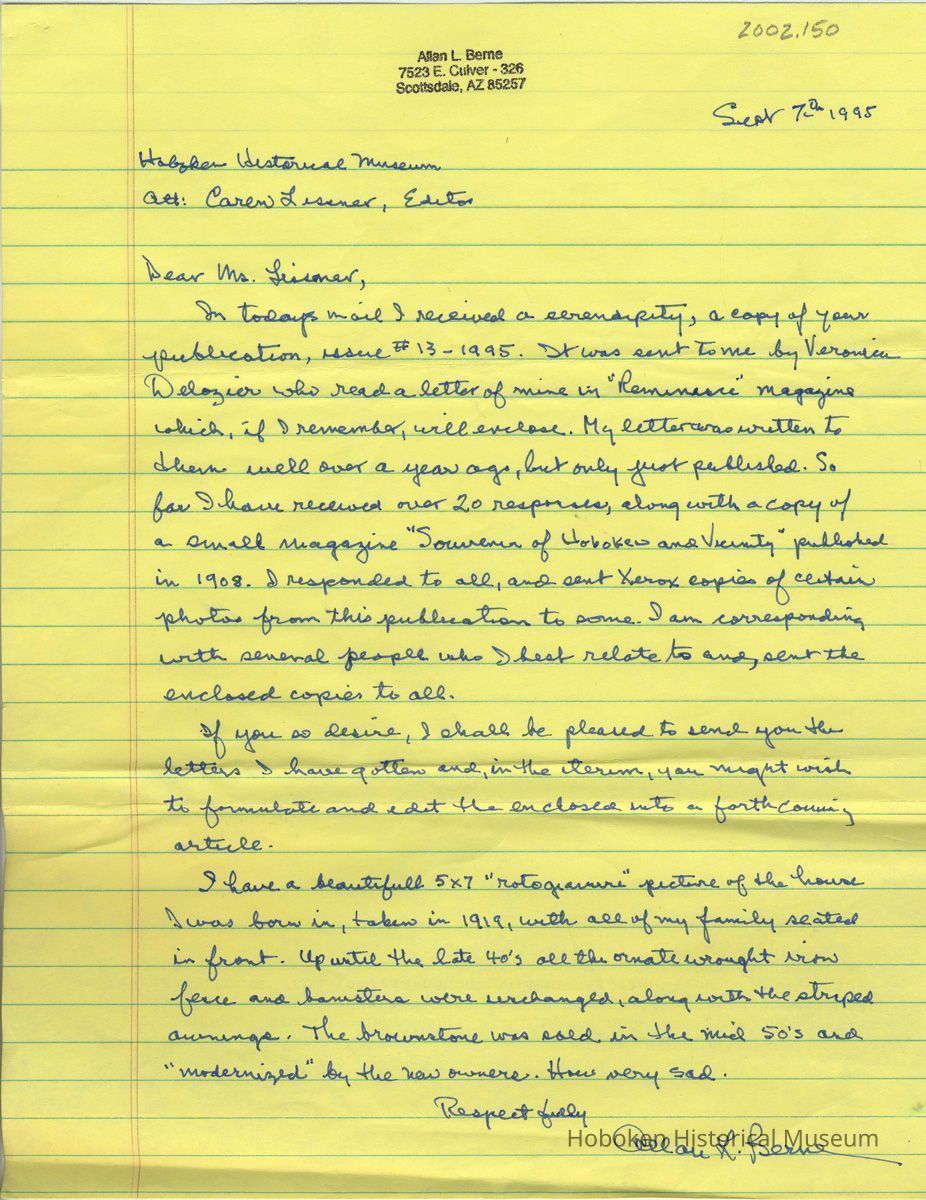 2002.150
Allan L. Berne
7523 E. Culver - 326
Scottsdale, AZ 85257
Sept 7th 1995
Hoboken Historical Museum
Att: Caren Lissner, Editor
Dear Ms. Lissner,
In todays mail I received a serendipity, a copy of your
publication, issue #13-1995. It was sent to me by Veronica
Delozier who read a letter of mine in "Reminisce" magazine
which, if I remember, will enclose. My letter was written to
them well over a year ago, but only just published. So
far I have received over 20 responses, along with a copy of
a small magazine "Souvenir of Hoboken and Vicinity" published
in 1908. I responded to all, and sent Xerox copies of certain
photos from this publication to some. I am corresponding
with several people who I best relate to and, sent the
enclosed copies to all.
If you so desire, I shall be pleased to send you the
letters I have gotten and, in the iterim, you might wish
to formulate and edit the enclosed into a forthcoming
article.
I have a beautifull 5x7 "rotogravure" picture of the house
I was born in, taken in 1919, with all of my family seated
in front. Up until the late 40's all the ornate wrought iron
fence and banisters were unchanged, along with the striped
awnings. The brownstone was sold in the mid 50's and
"modernized" by the new owners. How very sad.
Respectfully
Allan L. Berne
Hoboken Historical Museum